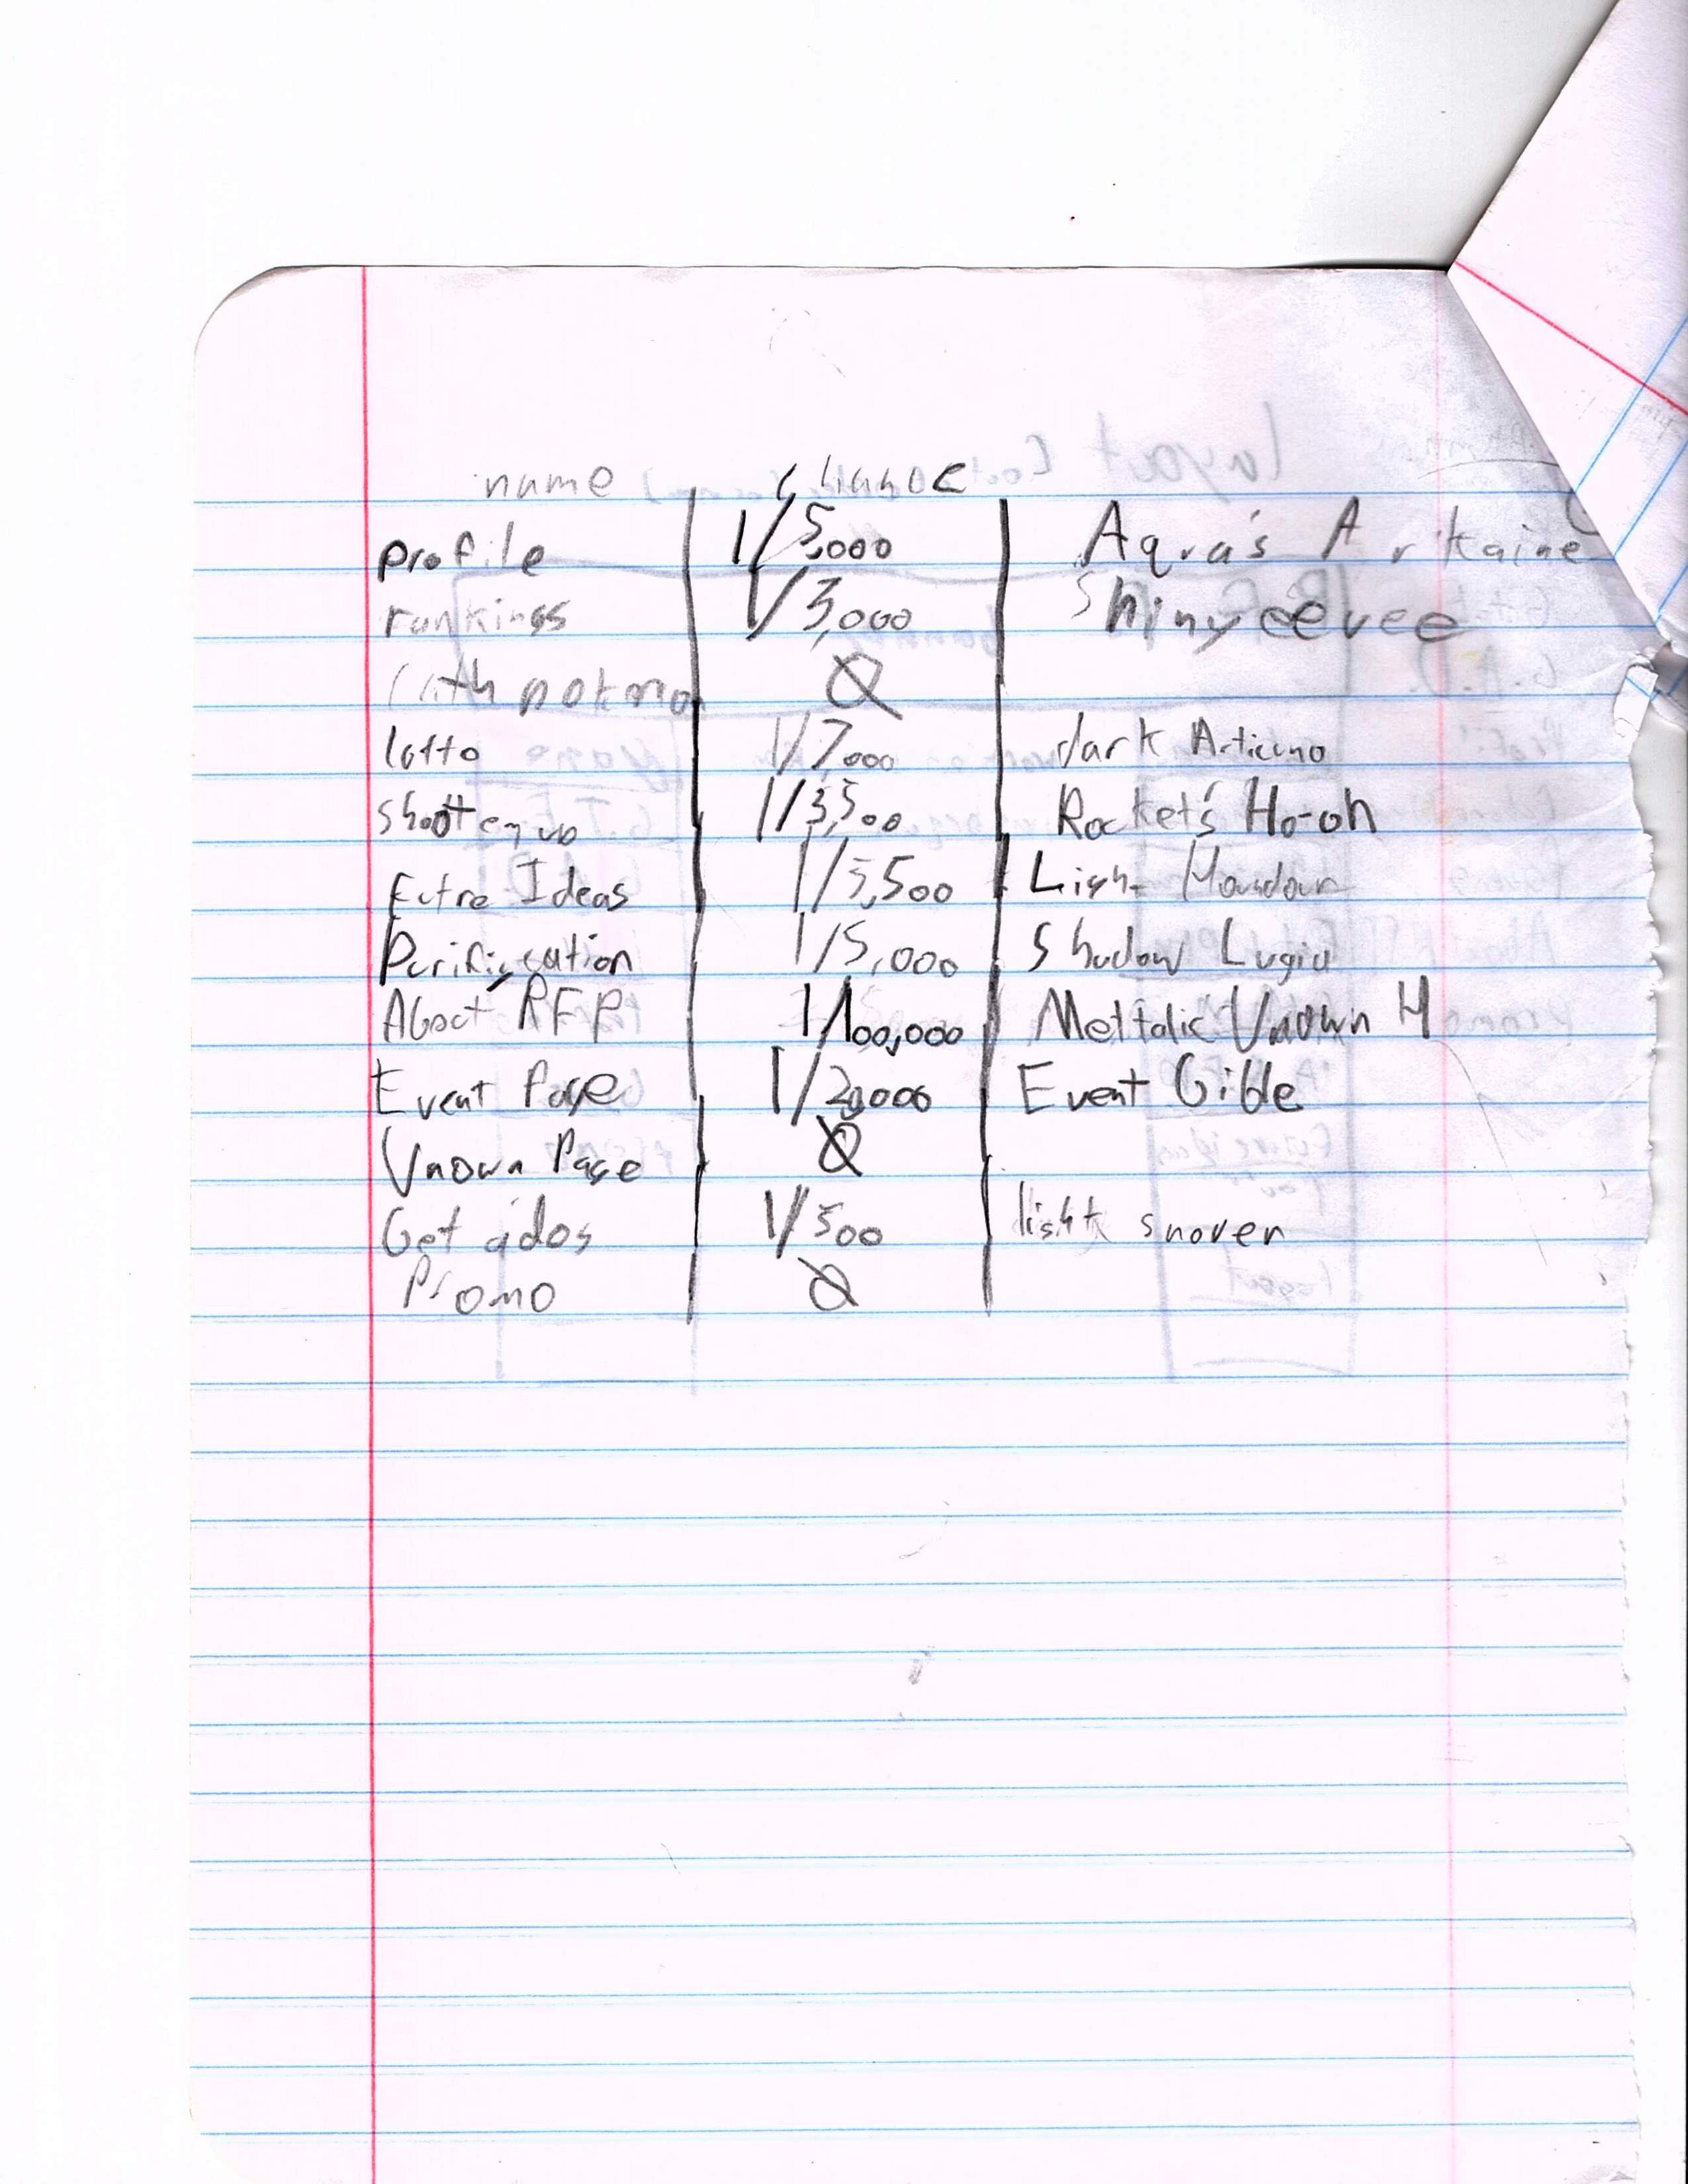 name chance
profile 1/5,000 Aqua's Arkaine
rankings 1/3,000 Shiny eevee
Cath pokemo Ø
lotto 1/7000 dark Articuno
1/3,500 Rocket's Ho-oh
Futre Ideas 1/3,500 Ligh Houndour
Purifiycation 1/5,000 Shadow Lugia
About RFP 1/100,000 Mettalic Unown H
Event Page 1/20,000 Event Gible
Unown Page Ø
Get ados 1/500 light snover
Promo Ø